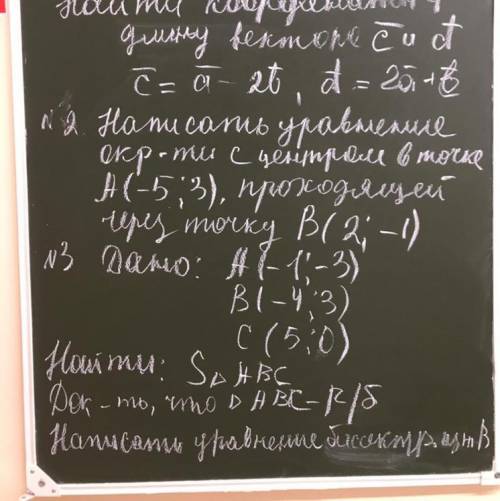 Найти координаты и
длину вектора c̄ и d̄
c̄ = ā - 2b̄, d̄ = 2ā + b̄
№2. Написать уравнение
окр-ти с центром в точке
A(-5; 3), проходящей
через точку B(2; -1)
№3 Дано: A(-1; -3)
B(-4; 3)
C(5; 0)
Найти: S△ABC
Док-ть, что △ABC - р/б
Написать уравнение биссектр. из т B